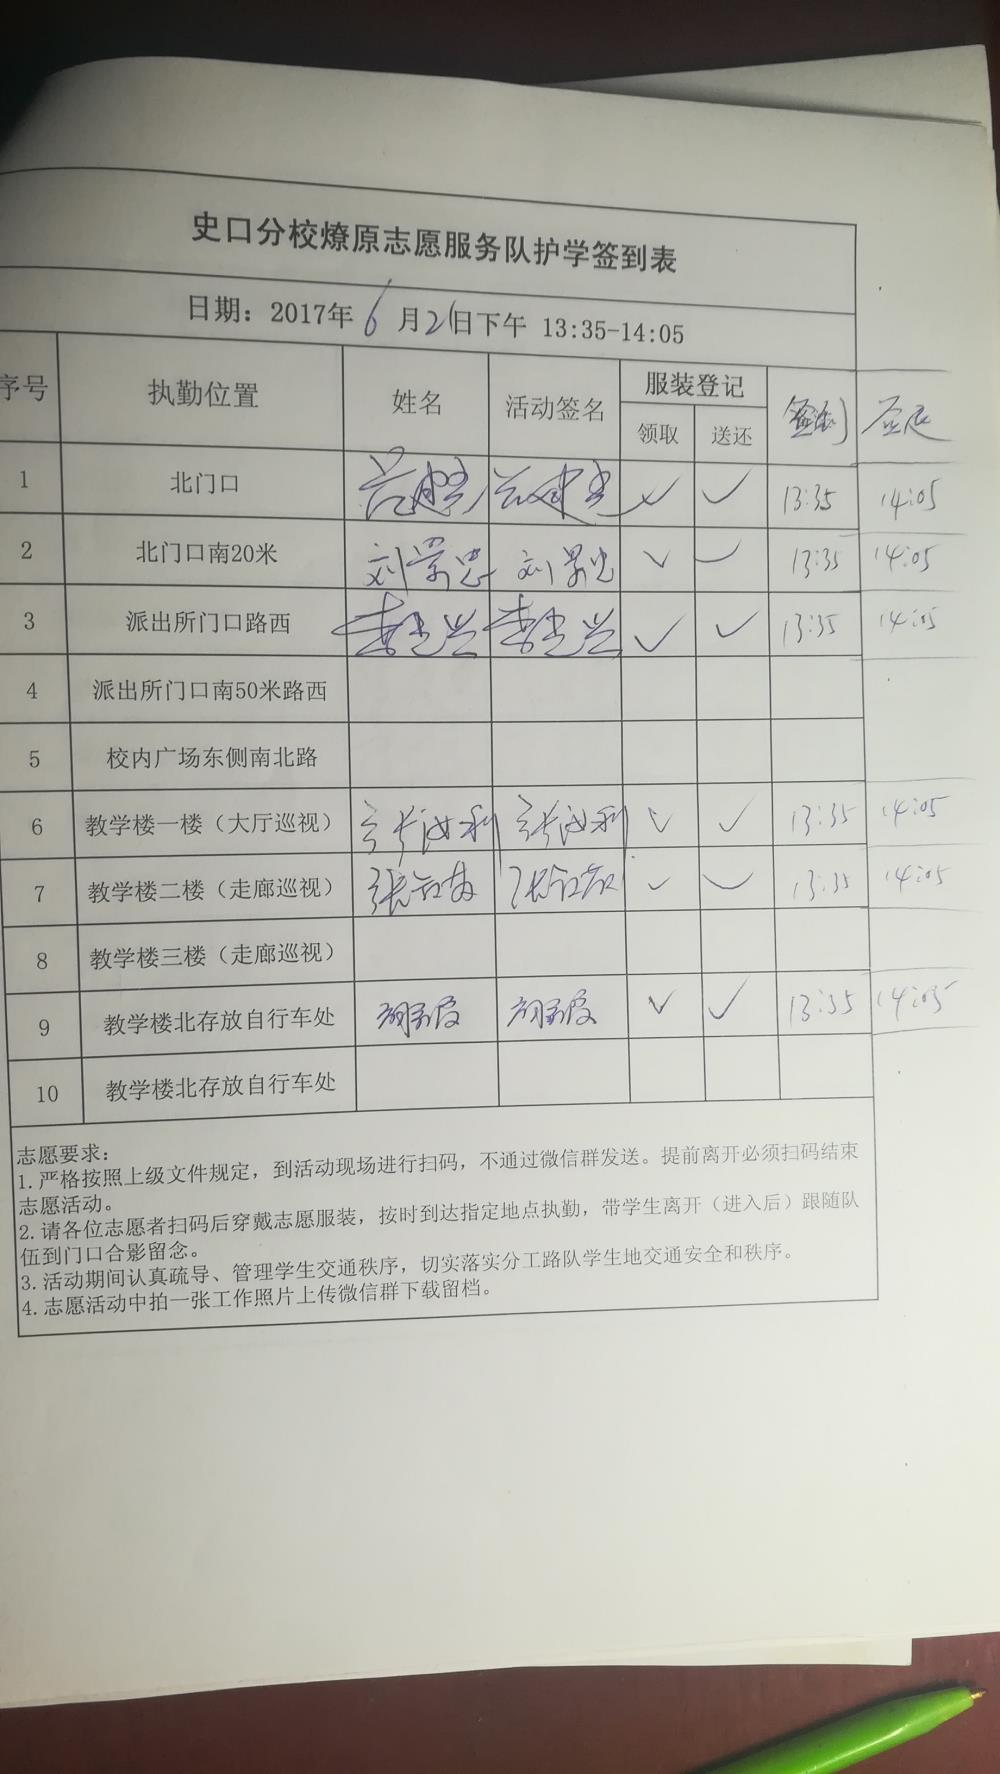 史口分校燎原志愿服务队护学签到表
日期：2017年6月21日下午 13:35-14:05
序号 执勤位置 姓名 活动签名 服装登记 签到 签退
领取 送还
1 北门口 ✓ ✓ 13:35 14:05
2 北门口南20米 刘景忠 刘景忠 ✓ ✓ 13:35 14:05
3 派出所门口路西 ✓ ✓ 13:35 14:05
4 派出所门口南50米路西
5 校内广场东侧南北路
6 教学楼一楼（大厅巡视） ✓ ✓ 13:35 14:05
7 教学楼二楼（走廊巡视） ✓ ✓ 13:35 14:05
8 教学楼三楼（走廊巡视）
9 教学楼北存放自行车处 ✓ ✓ 13:35 14:05
10 教学楼北存放自行车处
志愿要求：
1.严格按照上级文件规定，到活动现场进行扫码，不通过微信群发送。提前离开必须扫码结束
志愿活动。
2.请各位志愿者扫码后穿戴志愿服装，按时到达指定地点执勤，带学生离开（进入后）跟随队
伍到门口合影留念。
3.活动期间认真疏导、管理学生交通秩序，切实落实分工路队学生地交通安全和秩序。
4.志愿活动中拍一张工作照片上传微信群下载留档。